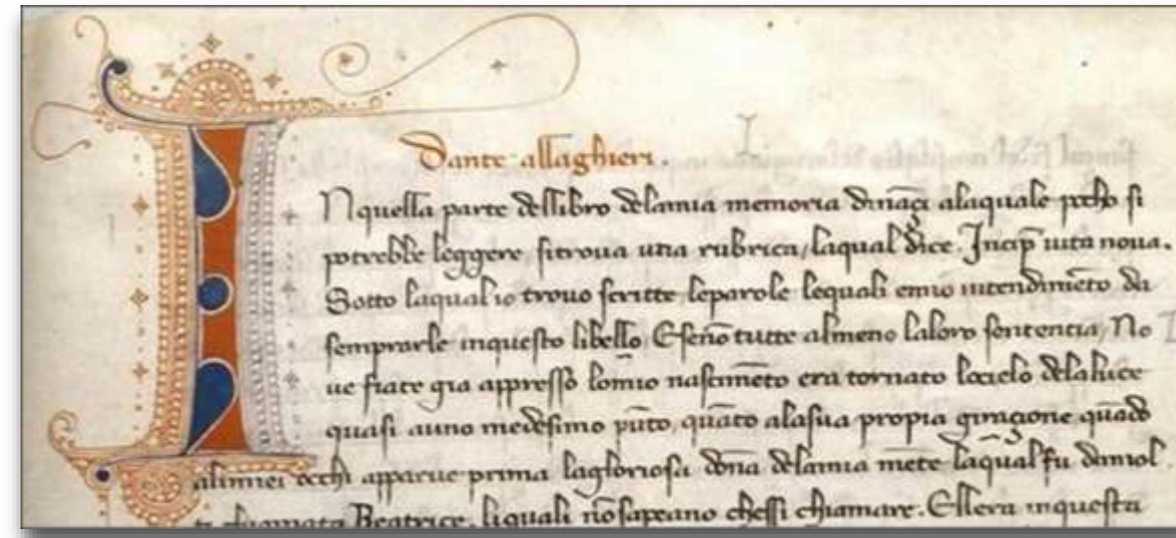 Dante allaghieri.
INquella parte dellibro delamia memoria dināçi alaquale pocho si
potrebbe leggere, sitroua una rubrica, laqual dice. Incip uita noua.
Sotto laqual io trouo scritte leparole lequali emio intendimēto da
semprarle inquesto libello, Esenō tutte almeno laloro sentencia, No
ue fiate gia appresso lomio nascimēto era tornato locielo delaluce
quasi auno medesimo pūto, quāto alasua propia giraçione quādo
alimiei occhi apparue prima lagloriosa dōna delamia mēte laqual fu damol
ti chiamata Beatrice, liquali nōsapeano chessi chiamare. Ellera inquesta